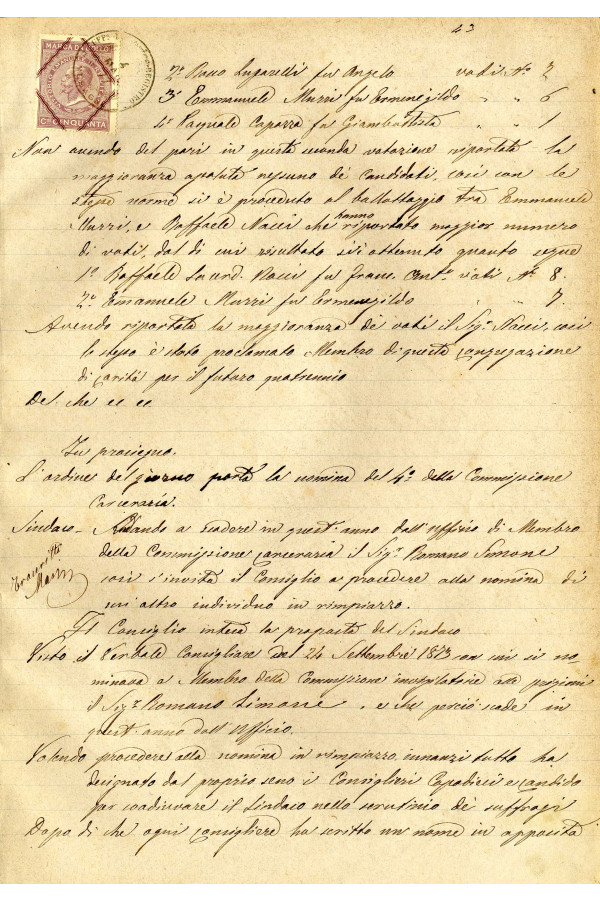 43
MARCA DA BOLLO
Cmi CINQUANTA
2° Rocco Lugarelli fu Angelo voti N° 2
3° Emmanuele Murri fu Ermenegildo " " 6
4° Pasquale Capozza fu Giambattista " 1
Non avendo del pari in questa seconda votazione riportata la
maggioranza assoluta nessuno dei Candidati, così con le
stesse norme si è proceduto al ballottaggio tra Emmanuele
Murri, e Raffaele Nacci che hanno riportato maggior numero
di voti, dal di cui risultato si è ottenuto quanto segue
1° Raffaele Sacerd. Nacci fu Franc. Ant.° voti N° 8.
2° Emanuele Murri fu Ermenegildo " 7.
Avendo riportata la maggioranza de voti il Sig.r Nacci, così
lo stesso è stato proclamato Membro di questa Congregazione
di carità per il futuro quatrennio
Del che ec ec
In prosieguo.
L'ordine del giorno porta la nomina del 4° della Commissione
carceraria.
Sindaco - Andando a scadere in quest'anno dall'Ufficio di Membro
della Commissione carceraria il Sig.r Romano Simone
così s'invita il Consiglio a procedere alla nomina di
un altro individuo in rimpiazzo.
Il Consiglio intesa la proposta del Sindaco
Visto il Verbale Consigliare del 24 Settembre 1873 con cui si no-
minava a Membro della Commissione le prigioni
il Sig.r Romano Simone, e che perciò scade in
quest'anno dall'Ufficio.
Volendo procedere alla nomina in rimpiazzo, innanzi tutto ha
designato dal proprio seno i Consiglieri Capodieci e Candido
per coadiuvare il Sindaco nello scrutinio de' suffragi
Dopo di che ogni Consigliere ha scritto un nome in apposita